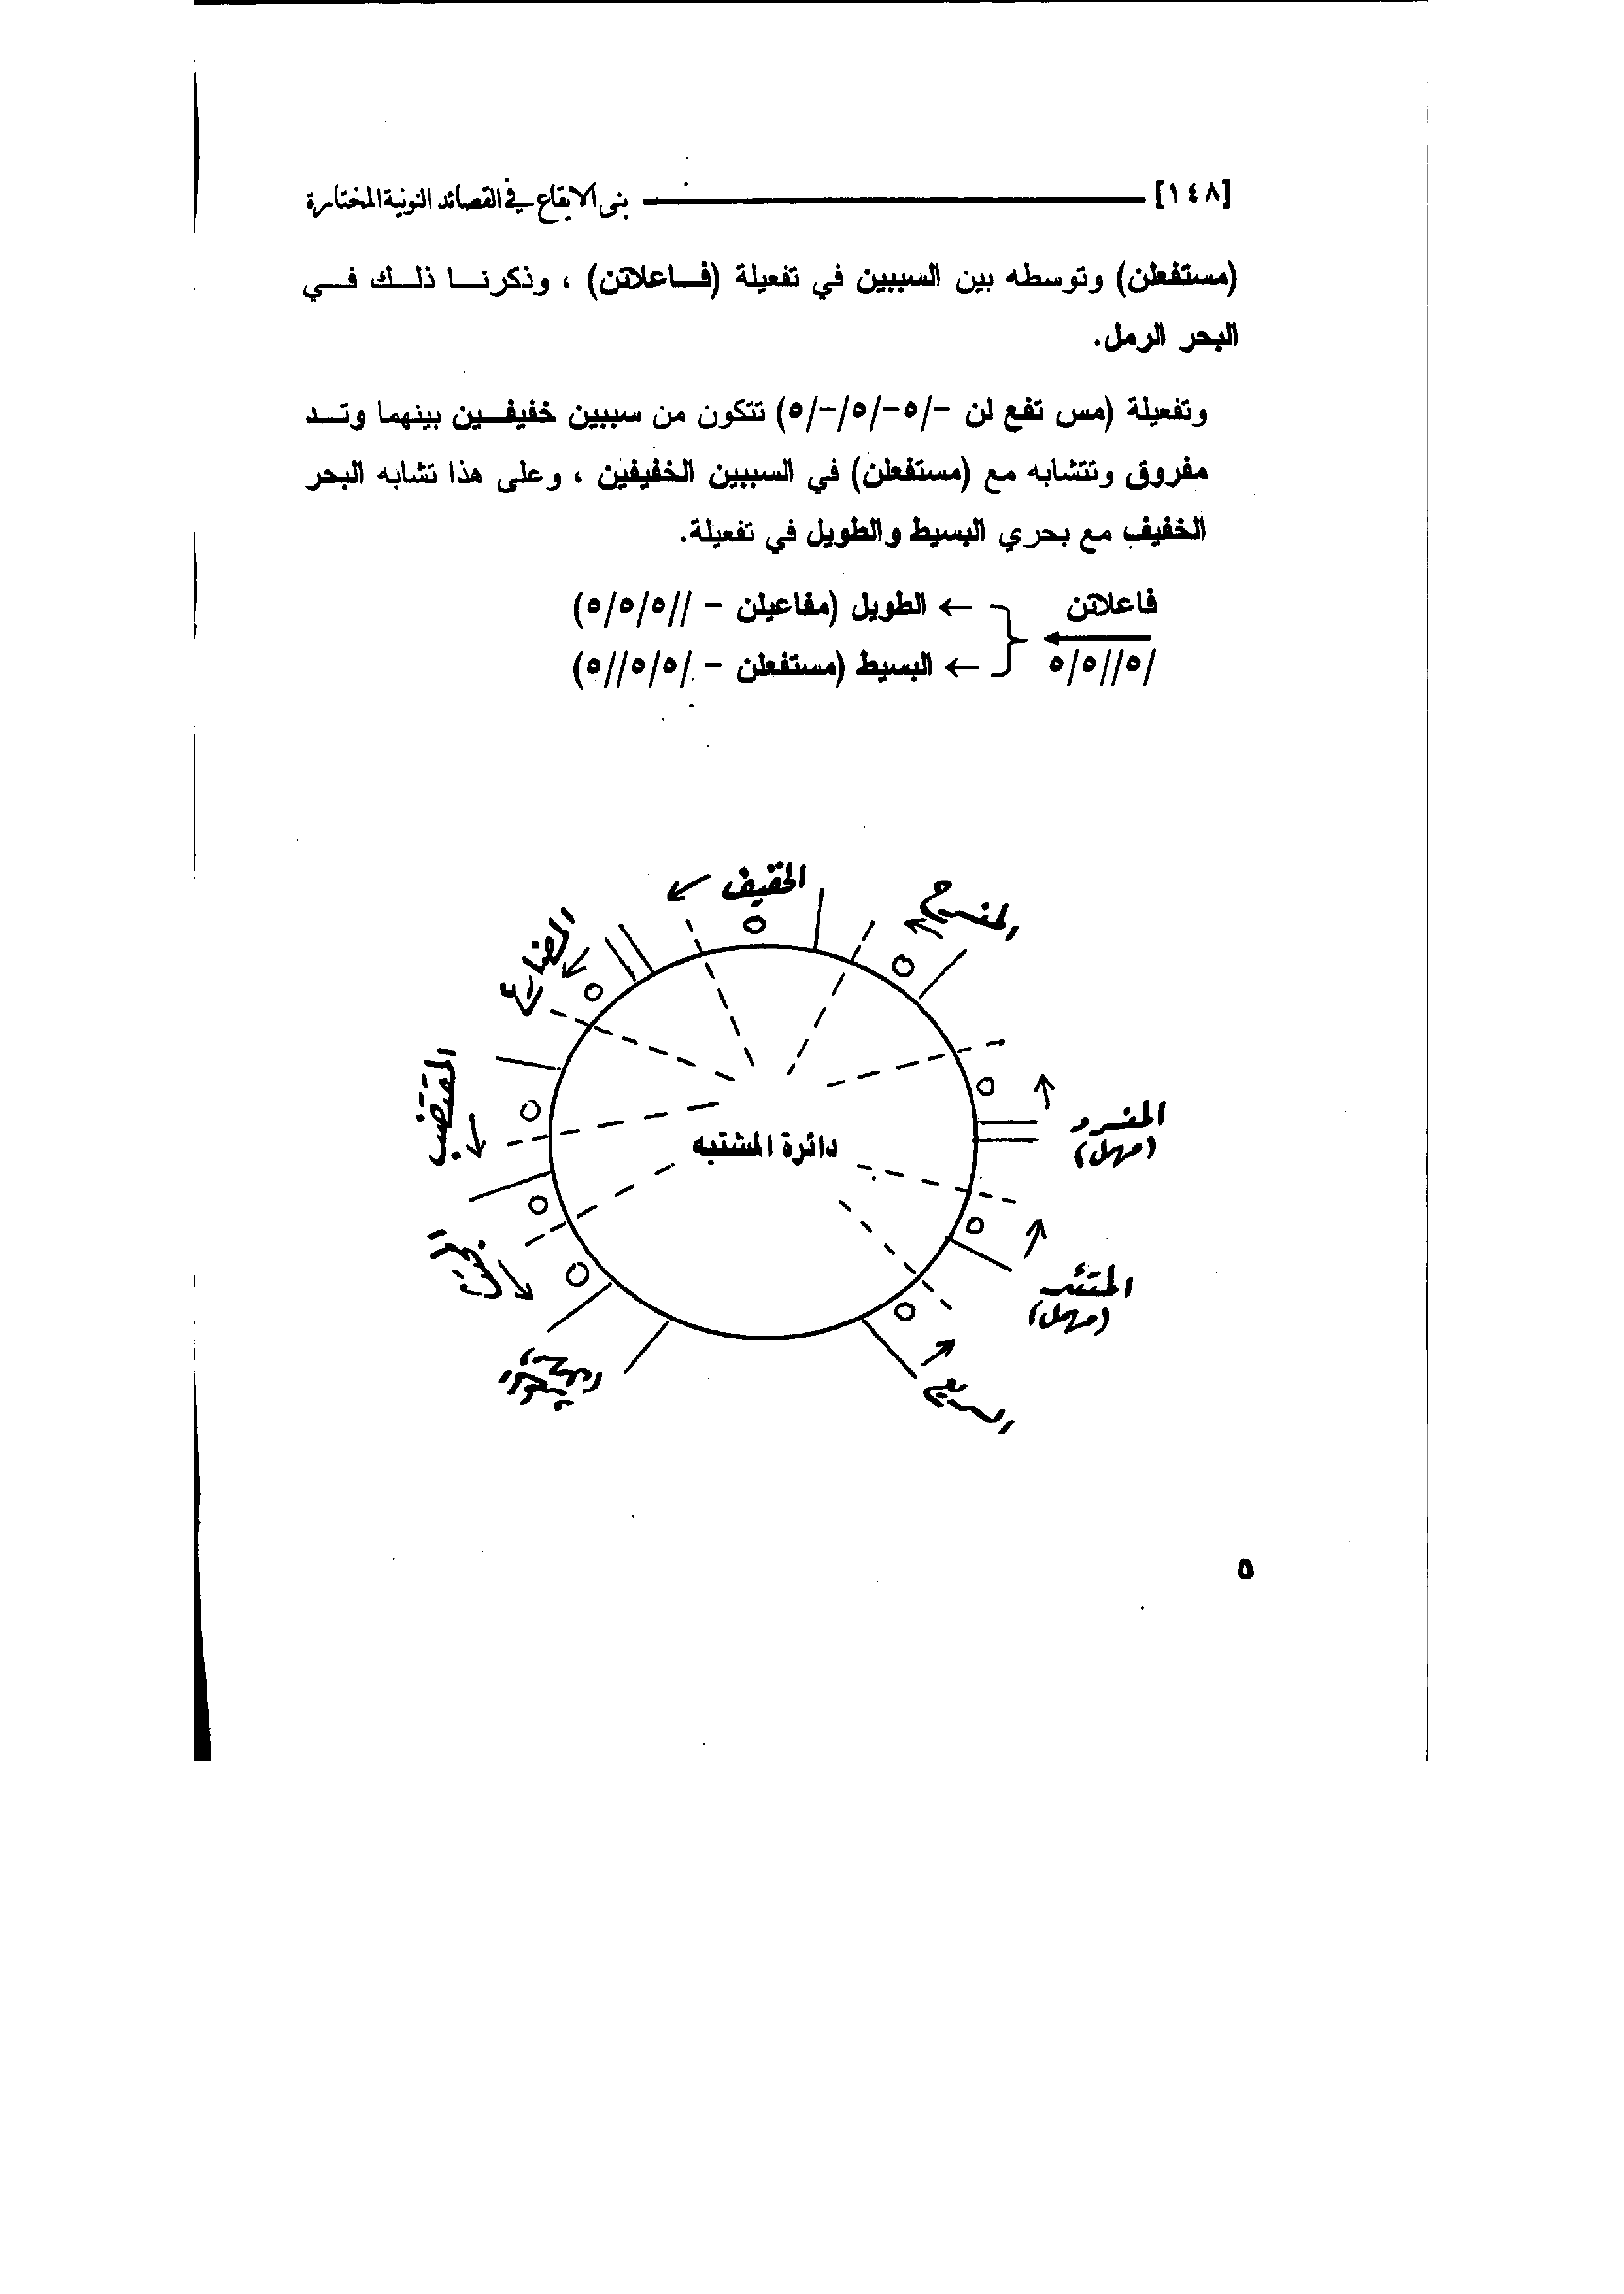 [١٤٨] بنى الايقاع في القصائد النونية المختارة
(مستفعلن) وتوسطه بين السببين في تفعيلة (فـــاعلاتن) ، وذكرنــا ذلــك فــي
البحر الرمل.
وتفعيلة (مس تفع لن –/٥–/٥/–/٥) تتكون من سببين خفيفــين بينهما وتــد
مفروق وتتشابه مع (مستفعلن) في السببين الخفيفين ، وعلى هذا تشابه البحر
الخفيف مع بحري البسيط والطويل في تفعيلة.
فاعلاتن ← الطويل (مفاعيلن – //٥/٥/٥)
/٥//٥/٥ ← البسيط (مستفعلن – /٥/٥//٥)
الخفيف
المنسرح
المضارع
المقتضب
المفسرد
(مهمل)
دائرة المشتبه
المتئد
(مهمل)
السريع
٥